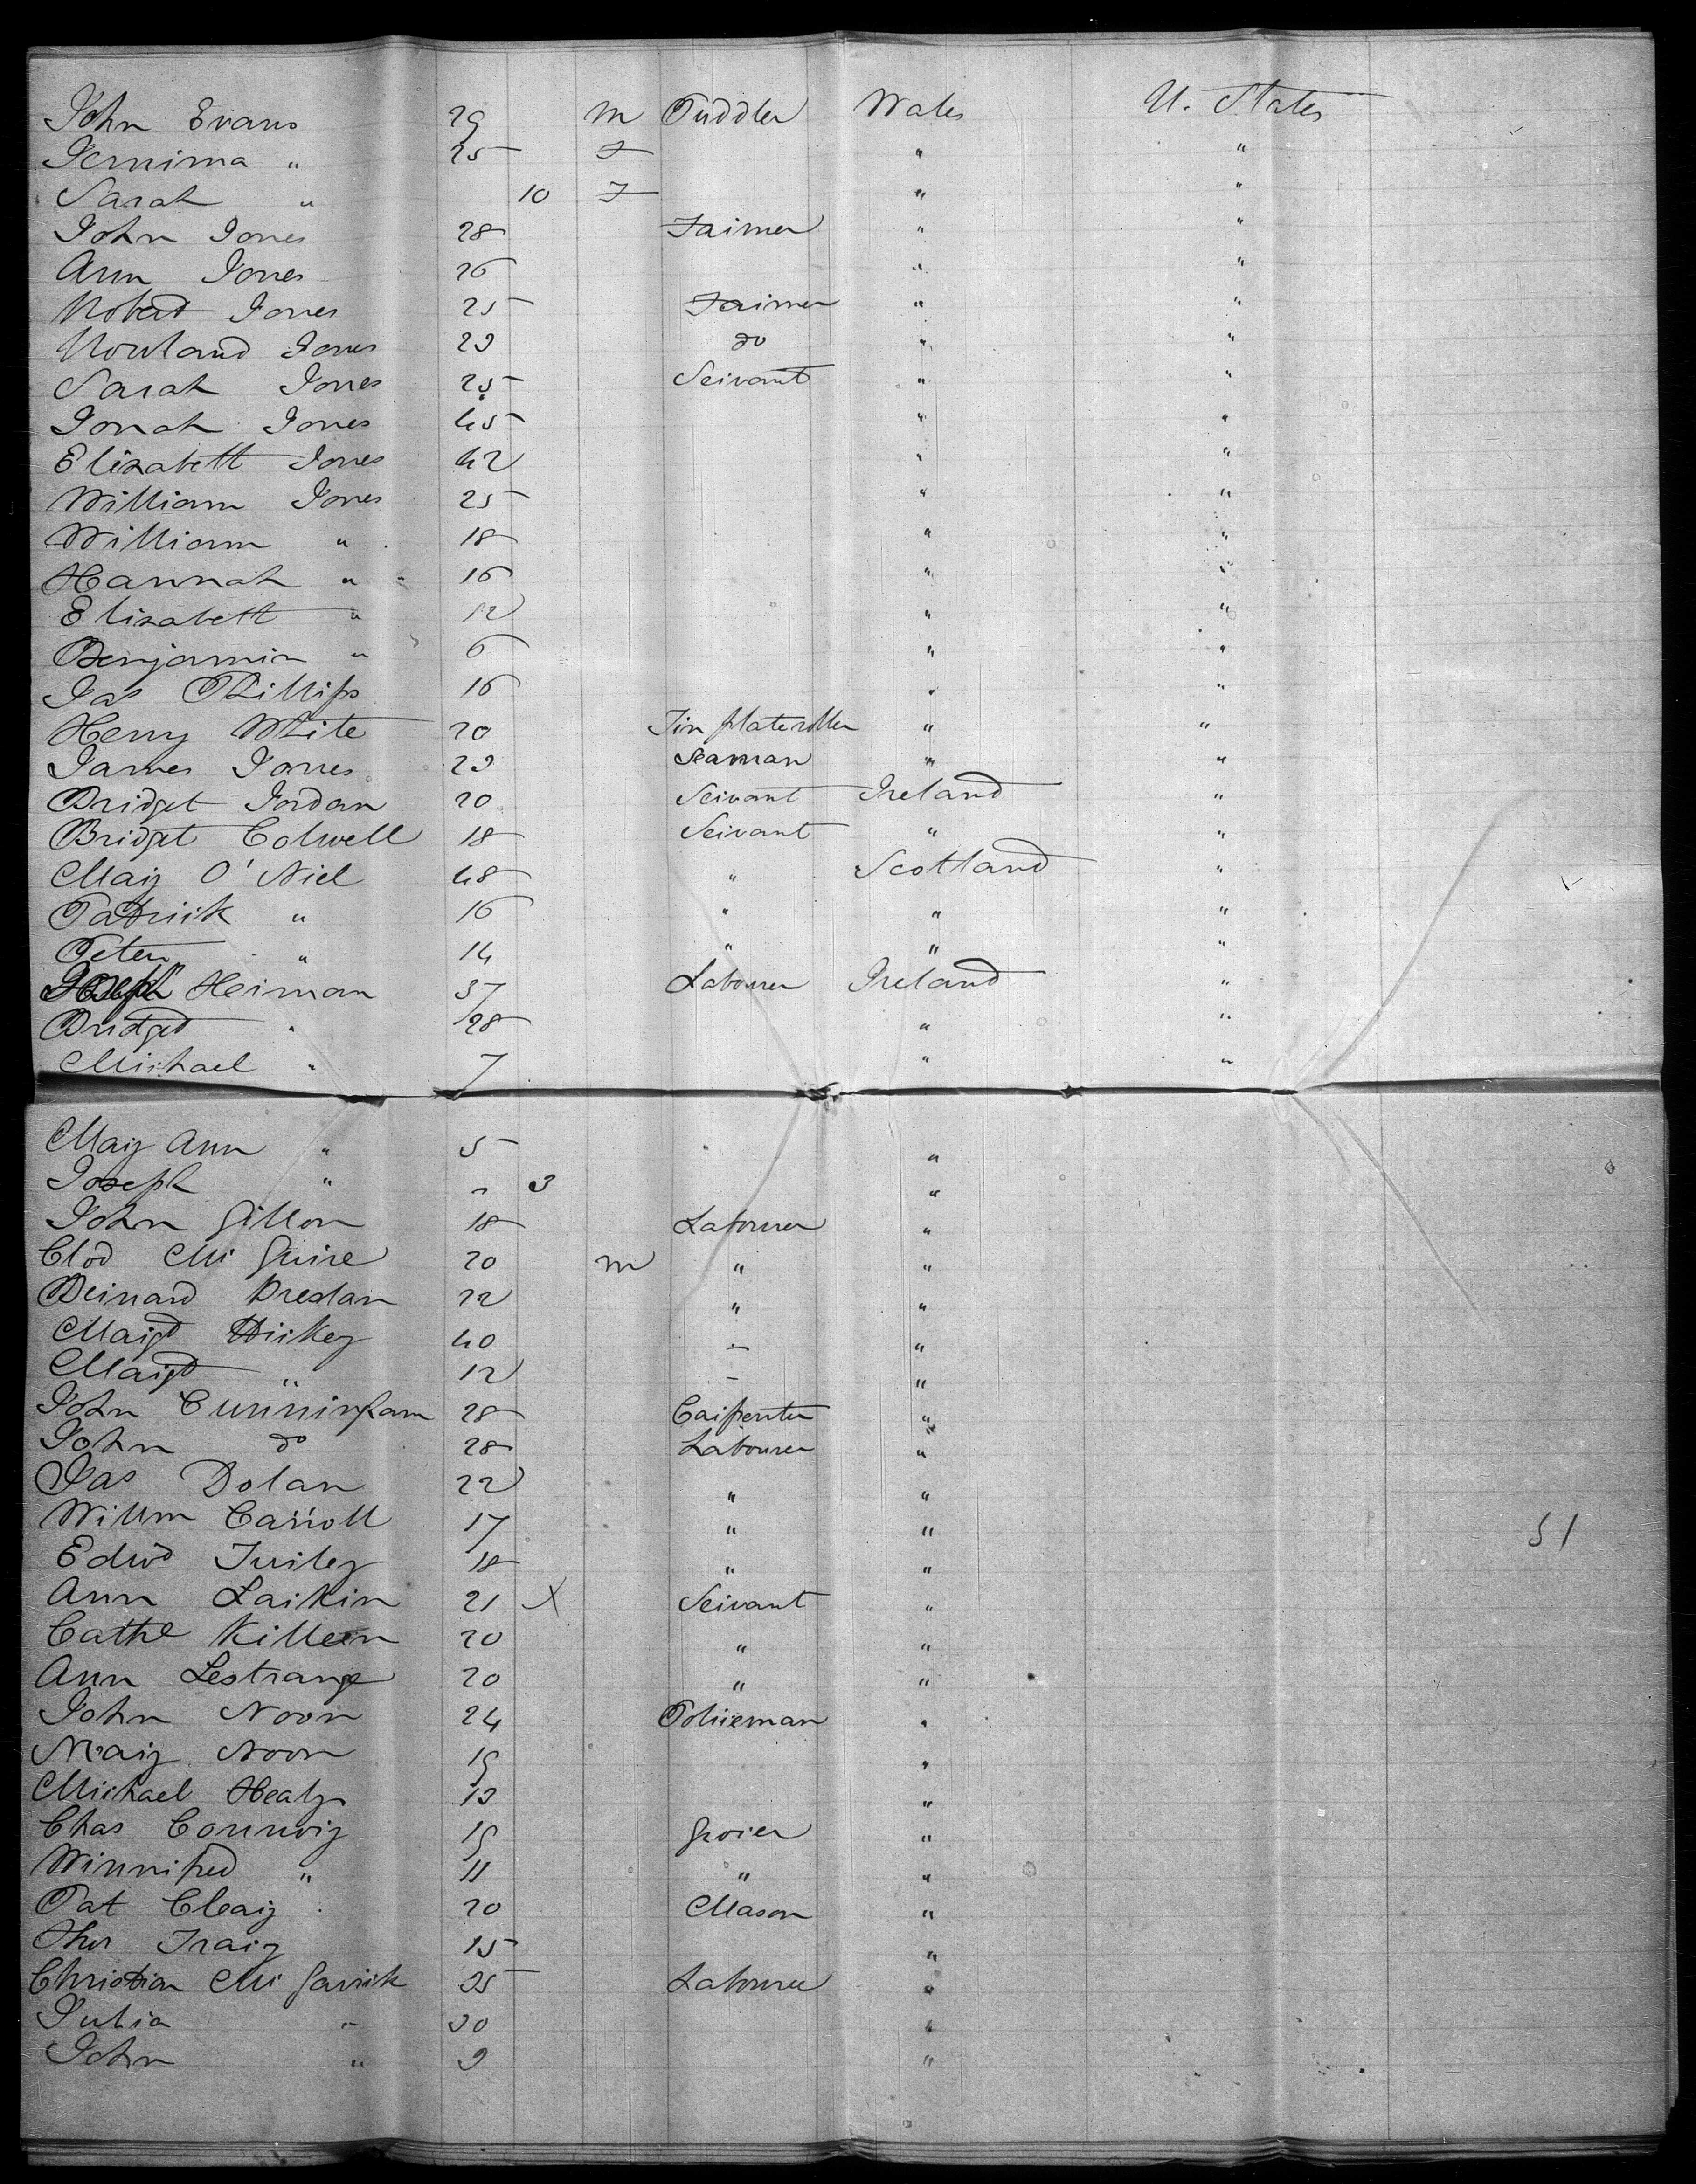 John Evans 29 m Puddler Wales U. States
Jemima " 25 F " "
Sarah " 10 F " "
John Jones 28 Farmer " "
Ann Jones 26 " "
Robert Jones 25 Farmer " "
Rowland Jones 23 do " "
Sarah Jones 25 Servant " "
Jonah Jones 45 " "
Elizabeth Jones 42 " "
William Jones 25 " "
William " 18 " "
Hannah " 16 " "
Elizabeth " 12 " "
Benjamin " 6 " "
Jas Phillips 16 " "
Henry White 20 Tin plate roller " "
James Jones 23 Seaman " "
Bridget Jordan 20 Servant Ireland "
Bridget Colwell 18 Servant " "
Mary O'Niel 48 " Scotland "
Patrick " 16 " " "
Peter " 14 " " "
Joseph Heirnan 37 Labourer Ireland "
Bridget " 28 " "
Michael " 7 " "
Mary Ann " 5 "
Joseph " " 3 "
John Gillon 18 Labourer "
Clod Mc Guire 20 m " "
Bernard Breslan 22 " "
Margt Hickey 40 – "
Margt " 12 – "
John Cunningham 28 Carpenter "
John do 28 Labourer "
Jas Dolan 22 " "
Willm Carroll 17 " "
Edwd Turley 18 " "
Ann Larkin 21 X Servant "
Cathe Killeen 20 " "
Ann Lestrange 20 " "
John Noon 24 Policeman "
Mary Noon 19 "
Michael Healy 13 "
Chas Conwoy 19 Grocer "
Winnifred " 11 " "
Pat Cleary 20 Mason "
Thos Tracy 15 "
Christian Mc Garrick 35 Labourer "
Julia " 30 "
John " 9 "
51